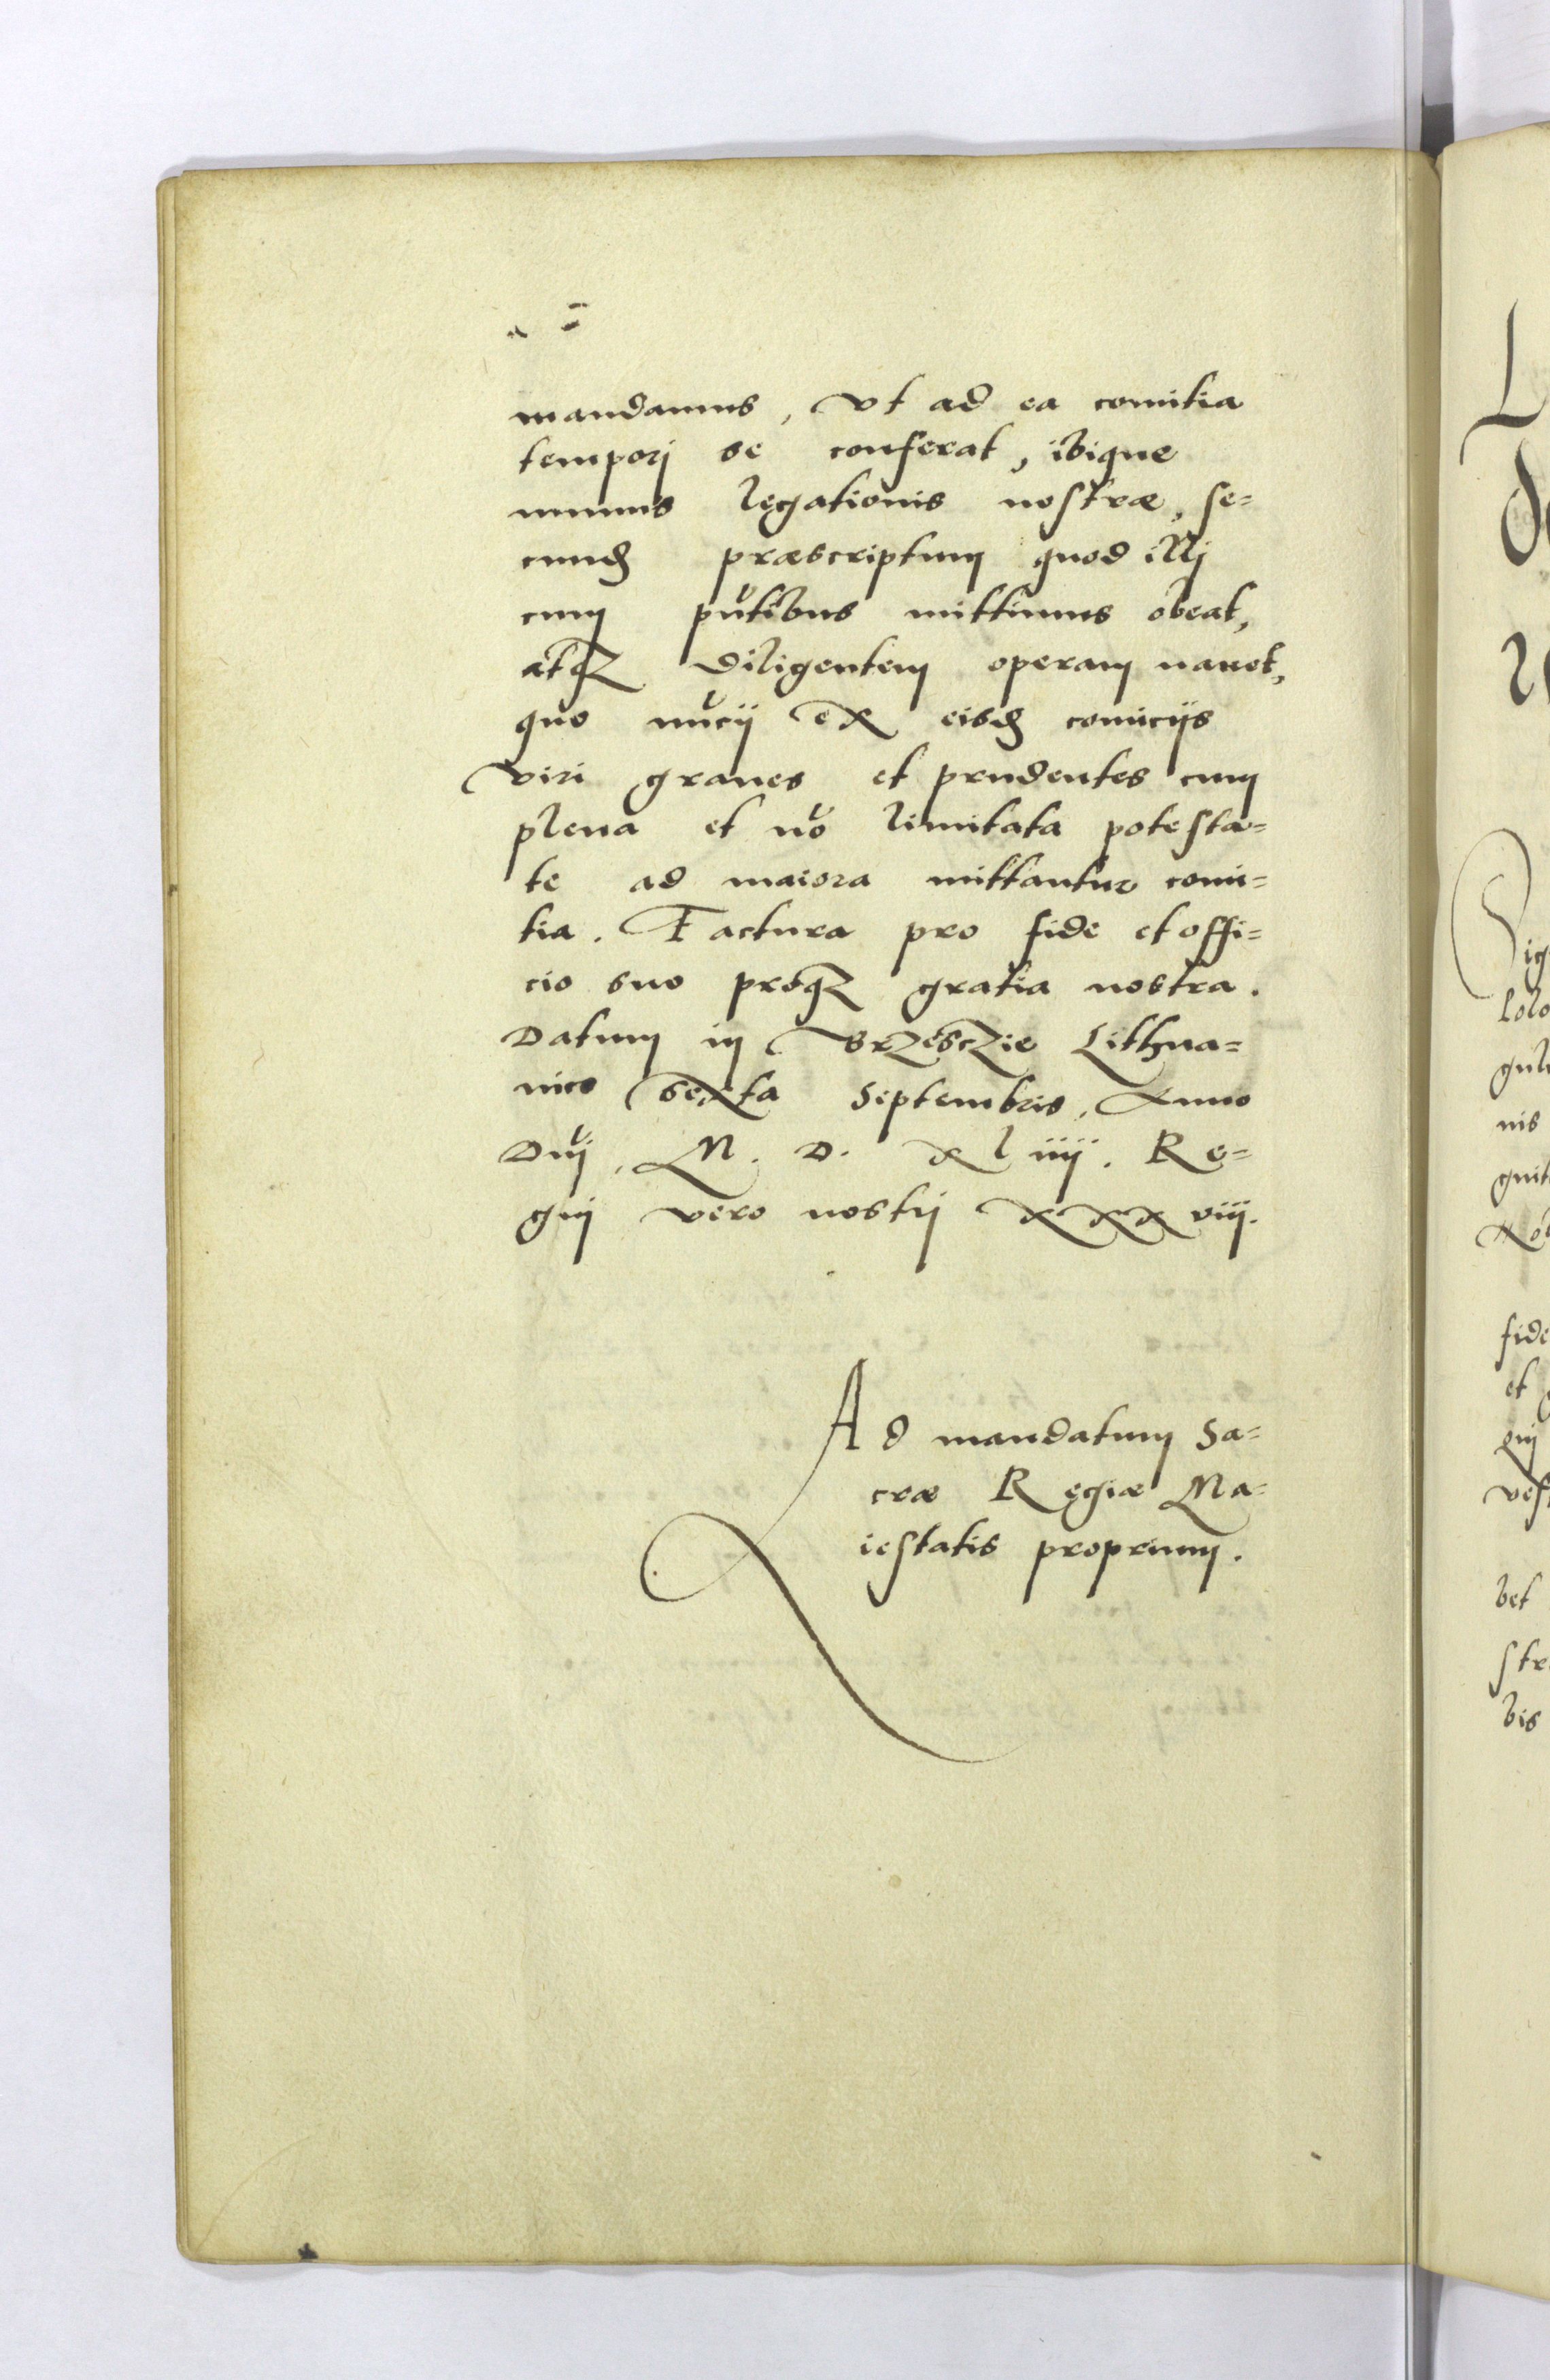 mandamus, vt ad ea comitia
temporj se conferat, ibique
munus lęgationis nostræ, se=
cundꝫ præscriptum quod illj
cum pñtibus mittimus obeat,
atqꝫ diligentem operam nauet,
quo nũcij ex eisdꝫ comicijs
viri graues et prudentes cum
plena et nõ limitata potesta=
te ad maiora mittantur comi=
tia. Factura pro fide et offi=
cio suo proqꝫ gratia nostra.
Datum in Brzesczie Lithua=
nico sexta Septembris, Anno
Dñj, M. D. xliiij. Re=
gnj vero nostrj xxxviij.
Ad mandatum Sa=
cræ Ręgiæ Ma=
iestatis proprium.